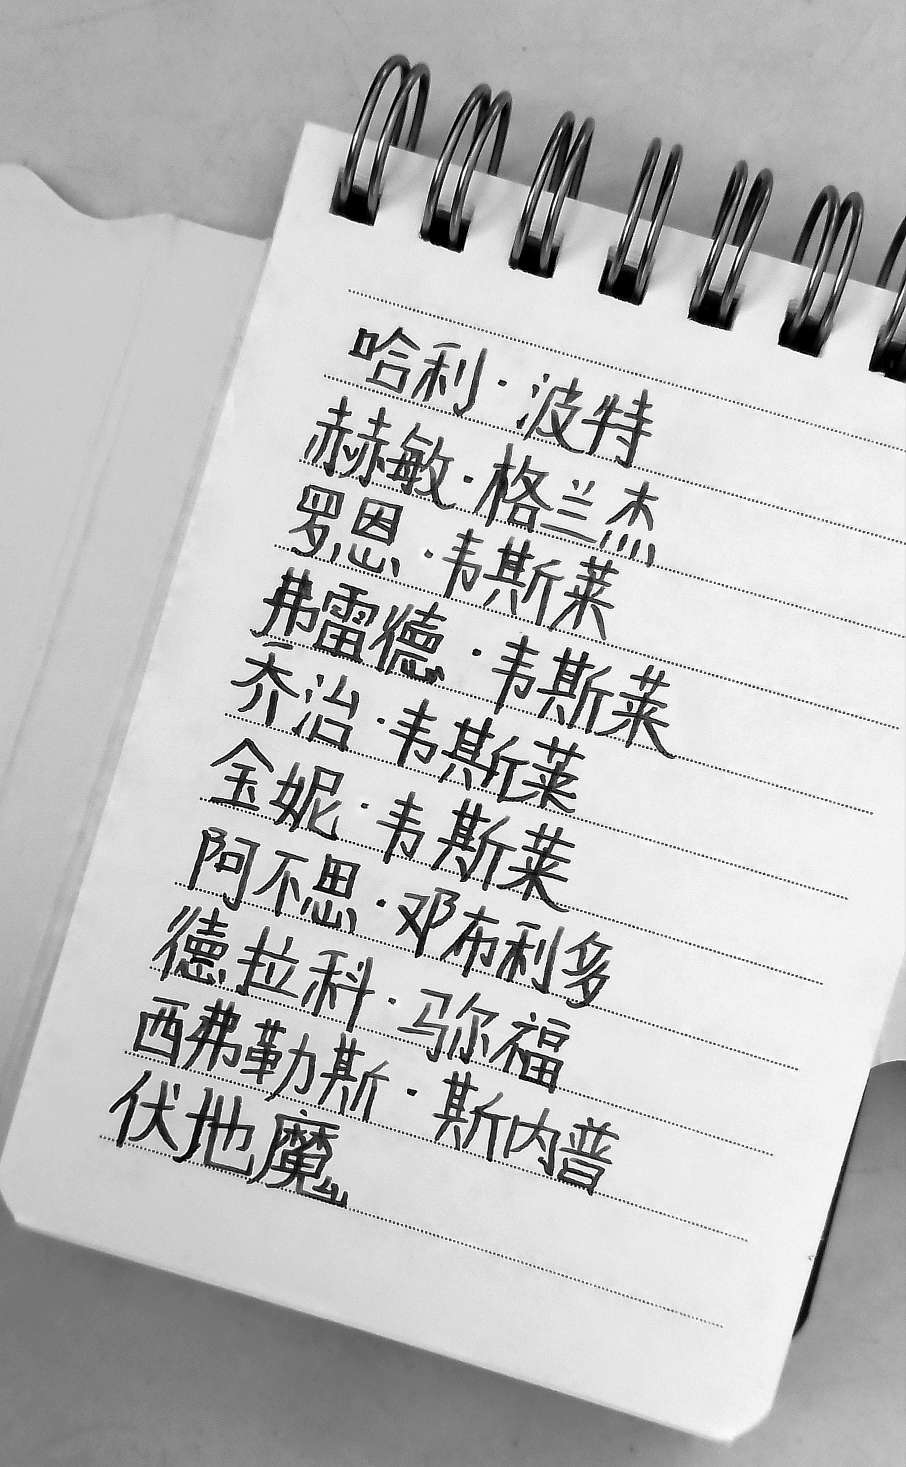 哈利·波特
赫敏·格兰杰
罗恩·韦斯莱
弗雷德·韦斯莱
乔治·韦斯莱
金妮·韦斯莱
阿不思·邓布利多
德拉科·马尔福
西弗勒斯·斯内普
伏地魔